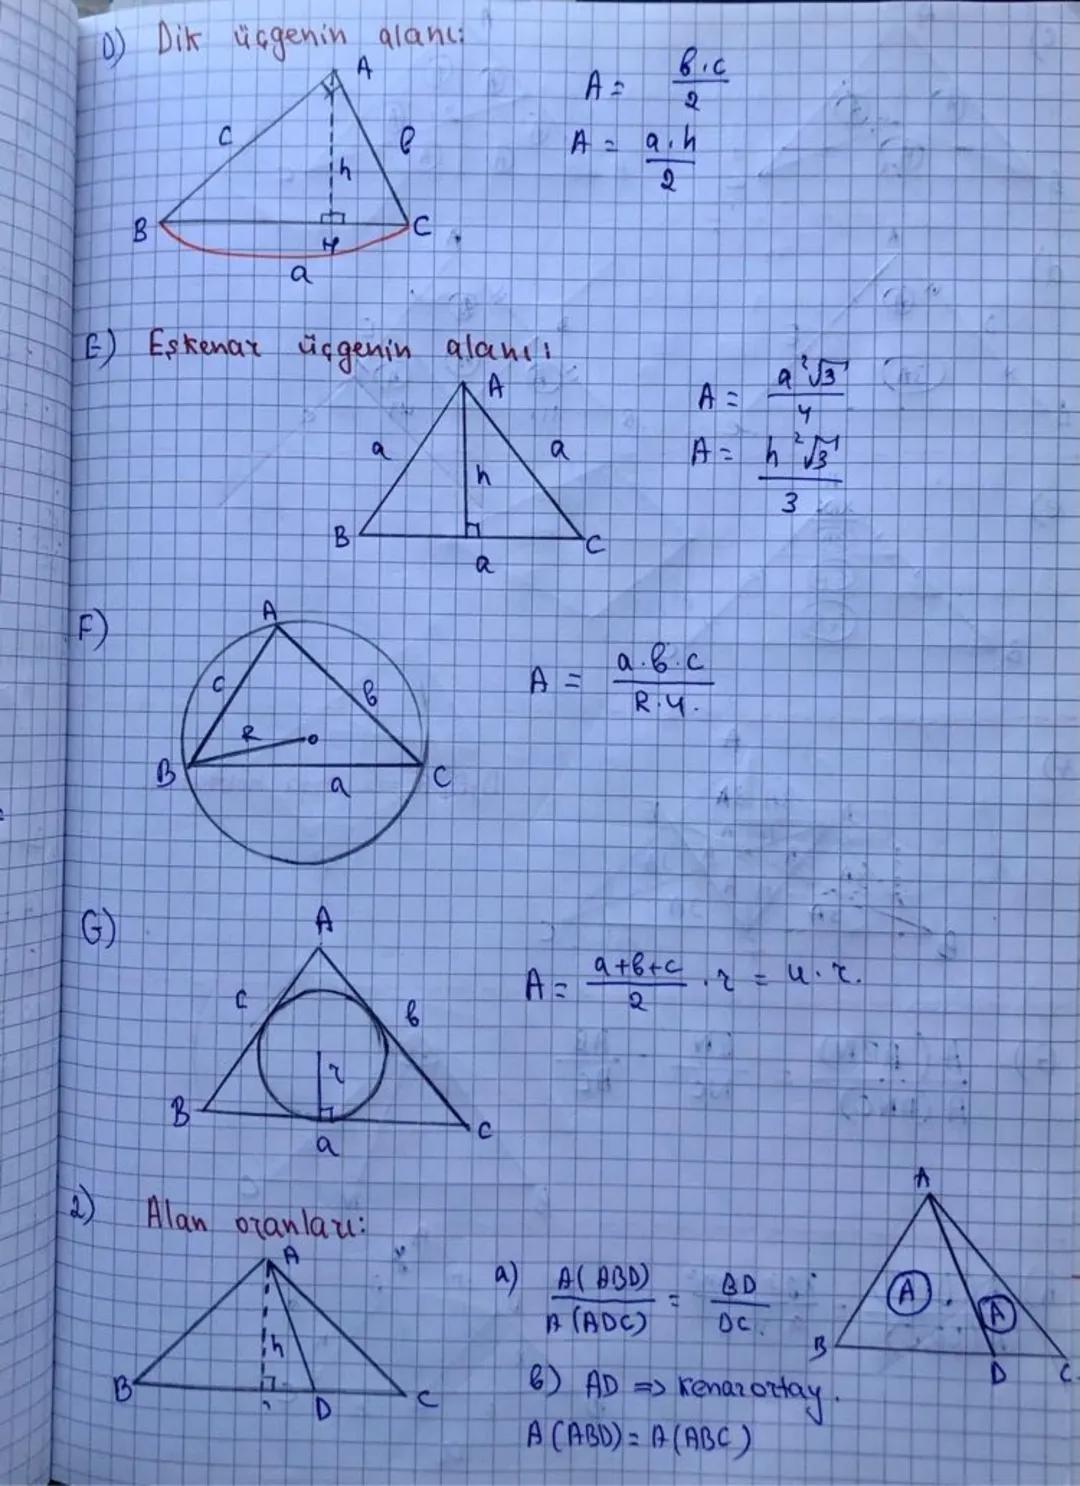 D) Dik üçgenin alanı:
A
c
b
h
B
H
C
a
A = b.c / 2
A = a.h / 2
E) Eşkenar üçgenin alanı:
A
a
a
h
B
C
a
A = a²√3 / 4
A = h²√3 / 3
F)
A
c
b
R
o
B
a
C
A = a.b.c / R.4.
G)
A
c
b
r
B
C
a
A = a+b+c / 2 . r = u.r.
2) Alan oranları:
A
h
B
D
C
a) A(ABD) / A(ADC) = BD / DC.
b) AD => kenarortay.
A(ABD) = A(ABC)
A
A
A
B
D
C